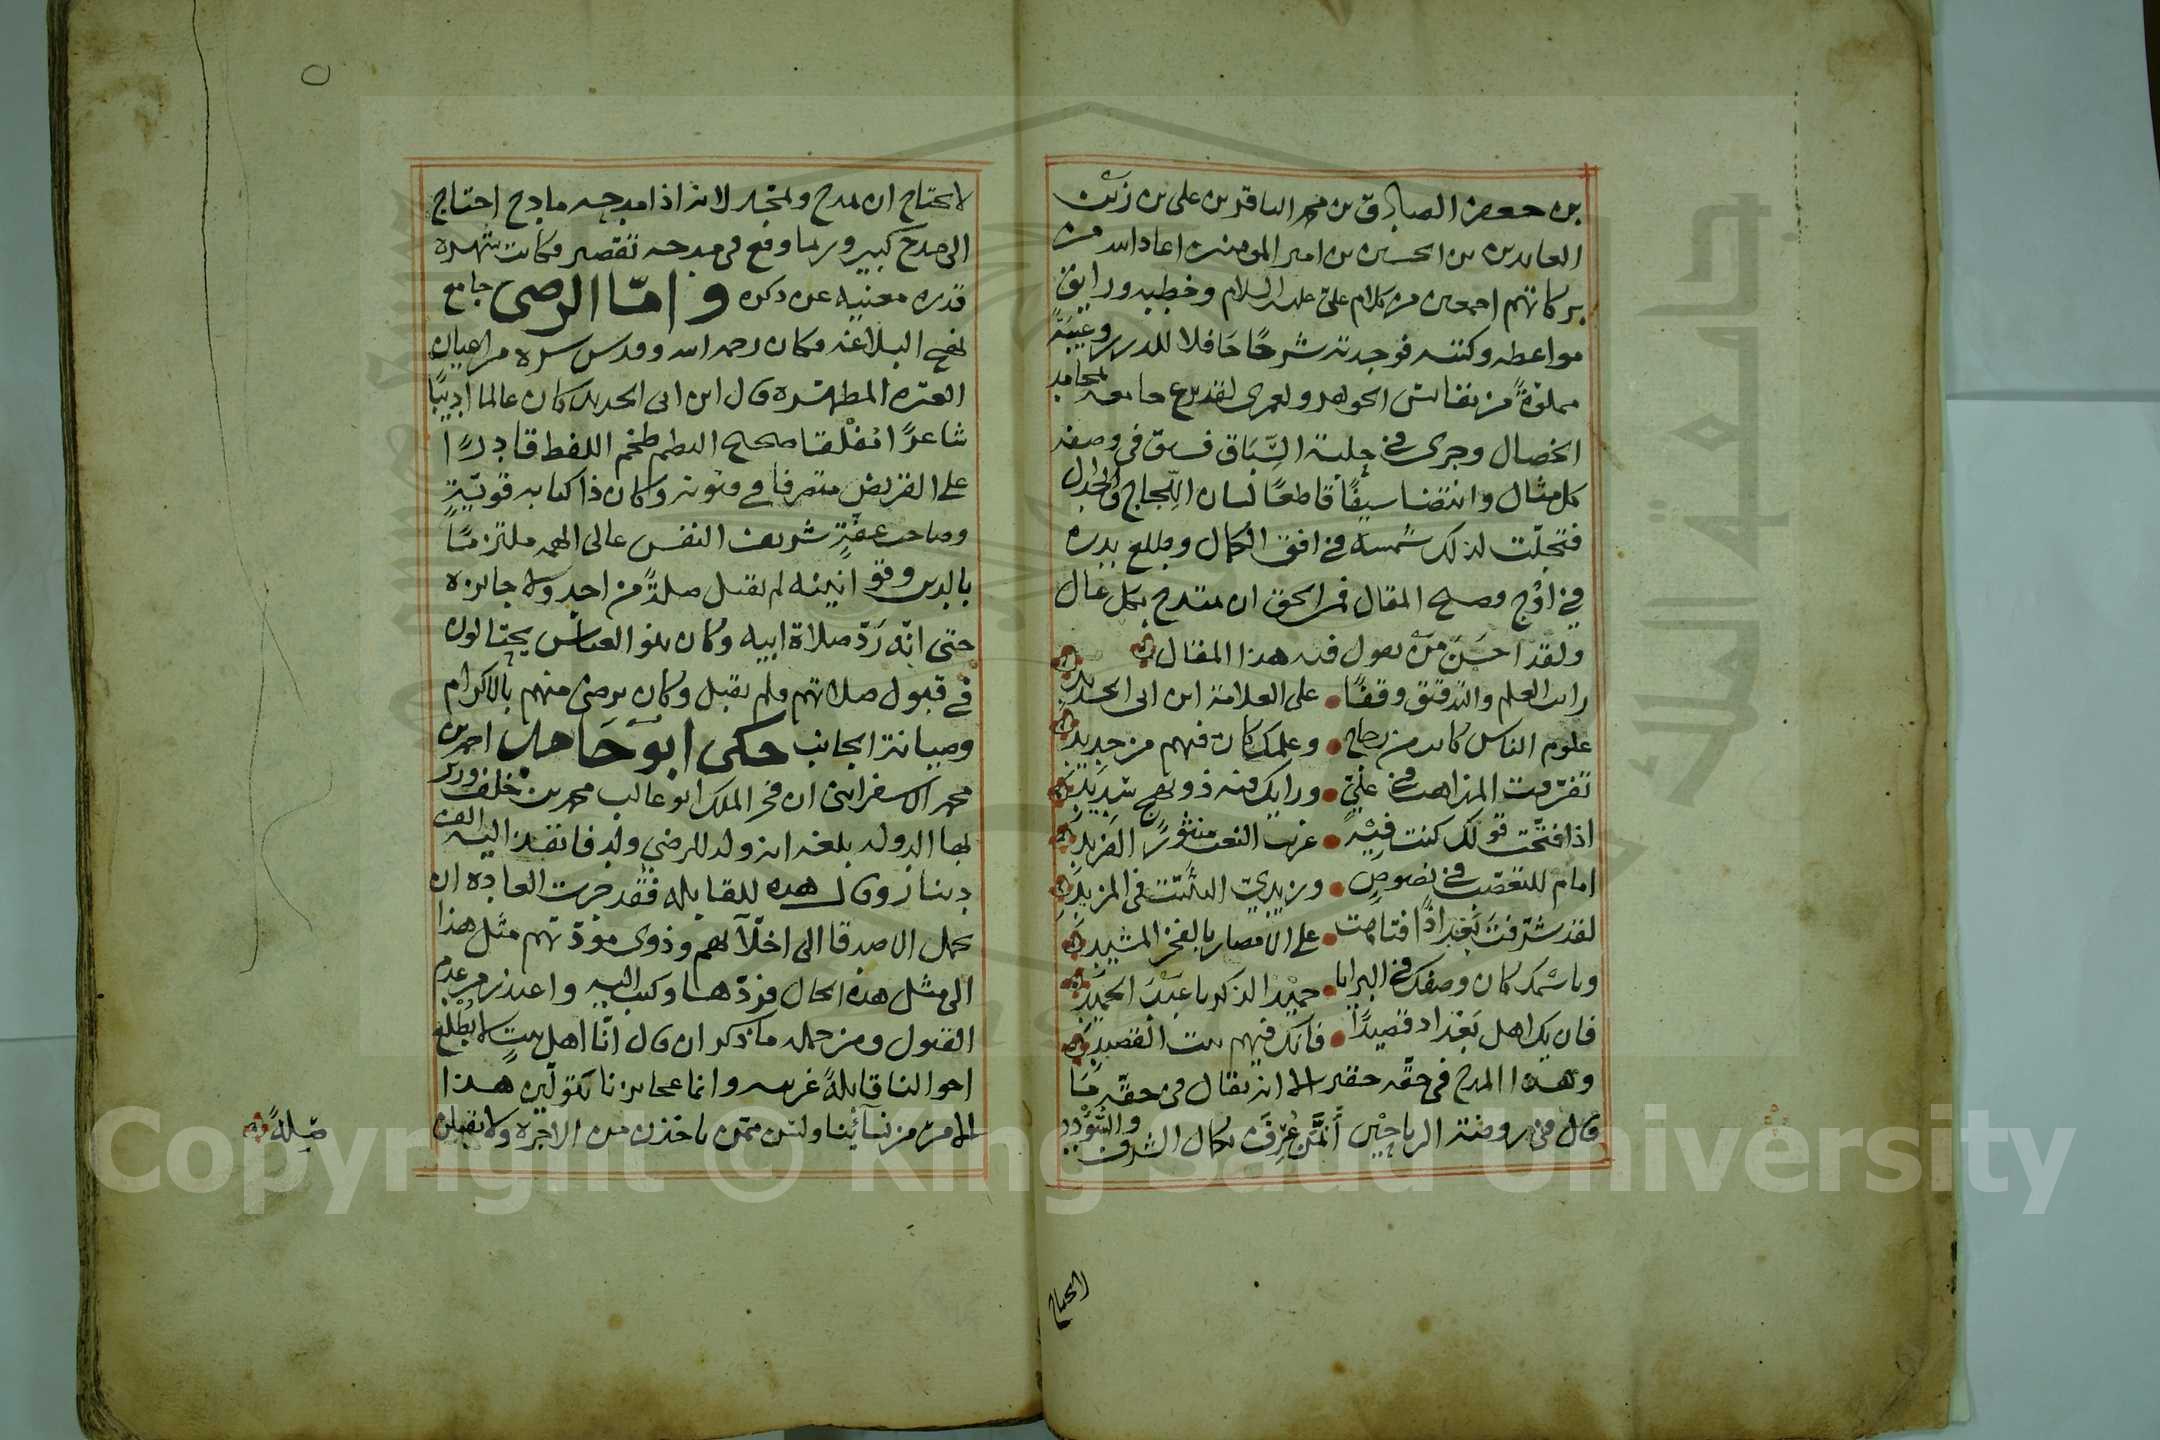 بن جعفر الصادق بن محمد الباقر بن على بن زين
العابدين بن الحسين بن امير المومنين اعاد الله من
بركاتهم اجمعين من كلام على عليه السلام وخطبه ورايق
مواعظه وكتبه فوجدته شرحًا حَافلا للدرر وعَيبَةً
مملوةً من نفائس الجواهر ولعمرى لقد برع جامعه لمحامد
الخصال وجرى فى حلبة السِّبَاق فسبق فى وصفه
كل مثال وانتضا سيفًا قاطعًا لسان اللِّجاج والجدل
فتجلّت لذلك شمسه فى افق الكمال وطلع بدره
فى اوْج وصح المقال فمن الحق ان يمتدح بكل غال
ولقد احسَن مَنْ يقول فيه هذا المقال
رايت العلم والتدقيق وقفًا • على العلامة ابن ابى الحديد
علوم الناس كانت من زجاج • وعلمك كان فيهم من حديد
تفرّقت المذاهب فى علىّ • ورايك فيه ذو نهج شديد
اذا فتحت قولك كنت فيه • غريب النعت منثور الفريد
امام للتعصّب فى نصوصٍ • ويزيدى التثبّت فى المزيد
لقد شرّفت بغداذًا فتاهت • على الامصار بالفخر المشيد
وباسمك كان وصفك فى البرايا • حميد الذكر يا عبْدَ الحميد
فان يك اهل بَغداد قصيدًا • فانك فيهم بيت القصيد
وهذا المدح فى حقّه حقير الا انه يقال فى حقّه مَا
قال فى روضة الرياحين أنَّ مَنْ عُرِفَ بكمال الشرف والسُّؤْدد
لايحتاج
لا يحتاج ان يمدح ويمجّد لانه اذا مدحه مادح احتاج
الى مدح كبير وربما وقع فى مدحه تقصير وكانت شهرة
قدره مغنيه عن ذكره وامّا الرضى جامع
نهج البلاغه فكان رحمه الله وقدس سره من اعيان
العترة المطهرة قال ابن ابى الحديد كان عالما اديبًا
شاعرًا مُفْلقا فصيح النظم ضخم اللفظ قادرًا
على القريض متصرفا فى فنونه وكان ذا كتابه قويّةٍ
وصاحب عفّةٍ شريف النفس عالى الهمه ملتزمًا
بالدين وقوانينه لم يقبل صلةً من احد ولا جائزه
حتى انّه رَدّ صلاة ابيه وكان بنو العباس يحتالون
فى قبول صلاتهم ولم يقبل وكان يرضى منهم بالاكرام
وصيانة الجانب حكى ابُو حَامد احمد بن
محمد الاسفراينى ان فخر الملك ابو غالب محمد بن خلف وزير
بها الدوله بلغه انه ولد للرضي ولد فانفذ اليه الف
دينار وقال هذه للقابله فقد جرت العادة ان
يحمل الاصدقا الى اخلّآئهم وذوى مودّتهم مثل هذا
الى مثل هذه الحال فردّها وكتب اليه واعتذر من عدم
القبول ومن جمله ما ذكر ان قال انّا اهل بيتٍ لا يُطلع
احوالنا قابلةً غريبه وانما عجائزنا يتولّين هذا
الامر من نسآئِنا ولسن ممّن ياخذن من الاجرة ولا يقبلن
صِلةً